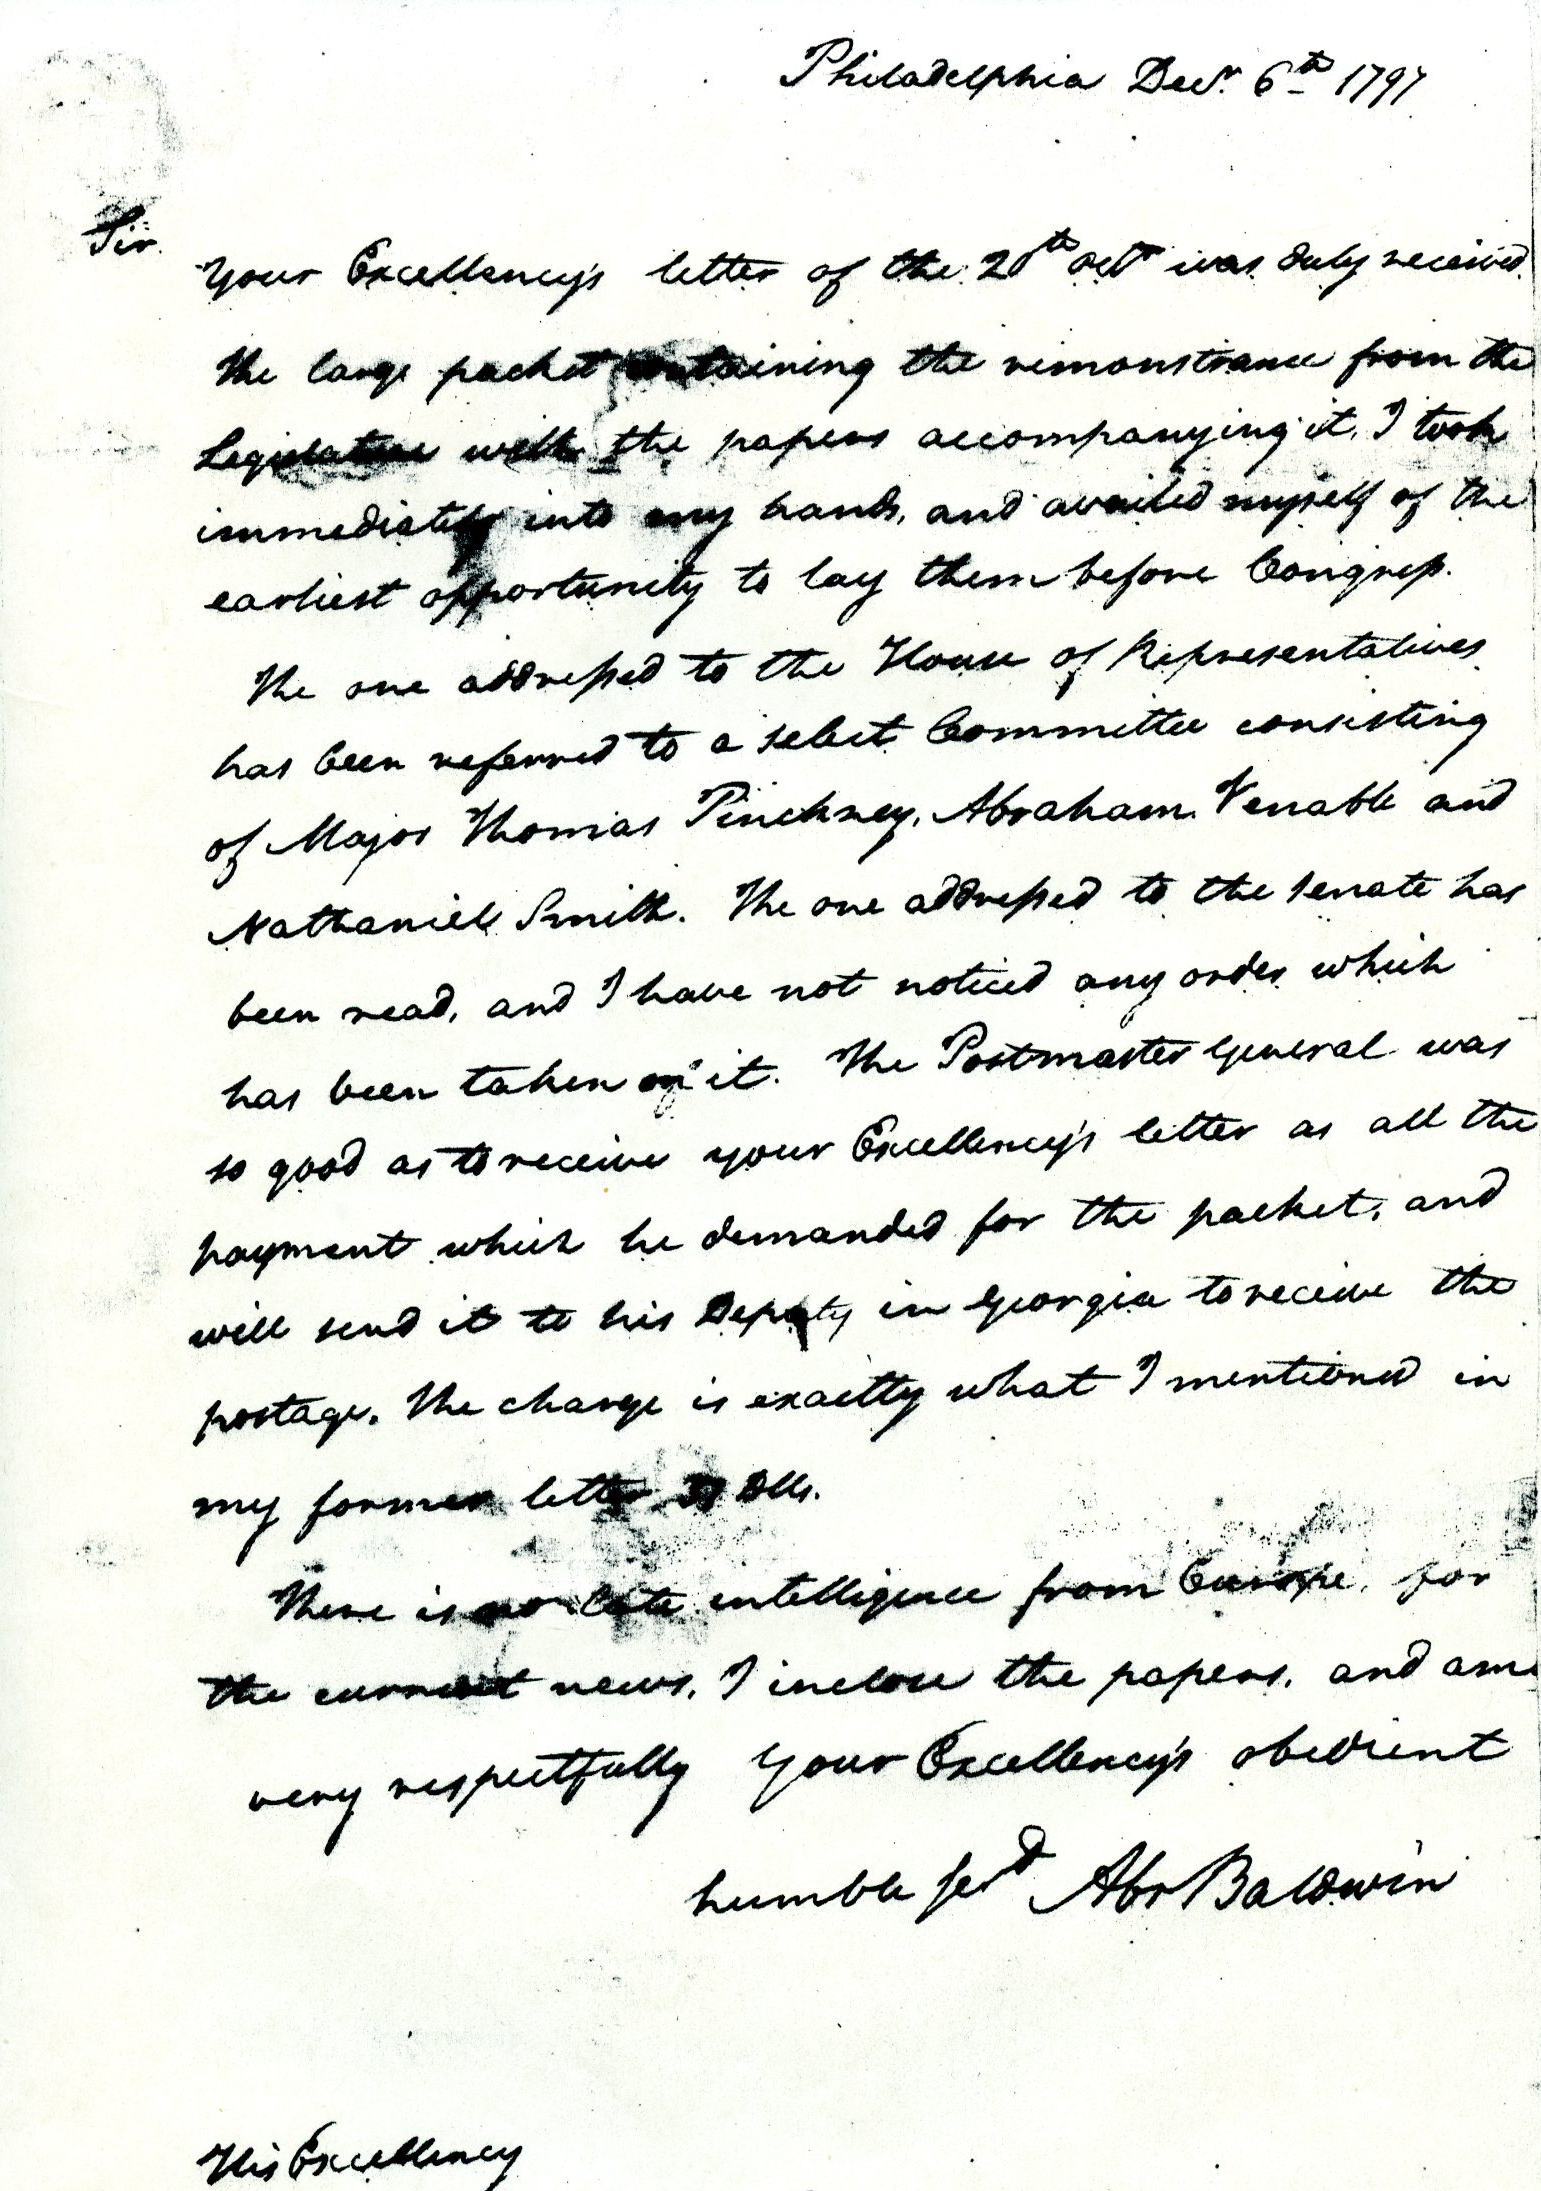 Philadelphia Decr. 6th 1797
Sir.
Your Excellency's letter of the 20th octr was duly received.
The large packet containing the remonstrance from the
Legislature with the papers accompanying it, I took
immediately into my hands, and availed myself of the
earliest opportunity to lay them before Congress.
The one addressed to the House of Representatives
has been referred to a select Committee consisting
of Major Thomas Pinckney, Abraham Venable and
Nathaniel Smith. The one addressed to the senate has
been read, and I have not noticed any order which
has been taken on it. The Postmaster General was
so good as to receive your Excellency's letter as all the
payment which he demanded for the packet, and
will send it to his Deputy in Georgia to receive the
postage. The charge is exactly what I mentioned in
my former letter Dlls.
There is no late intelligence from Europe, for
the current news, I inclose the papers, and am
very respectfully Your Excellency's obedient
humble servt Abr Baldwin
His Excellency